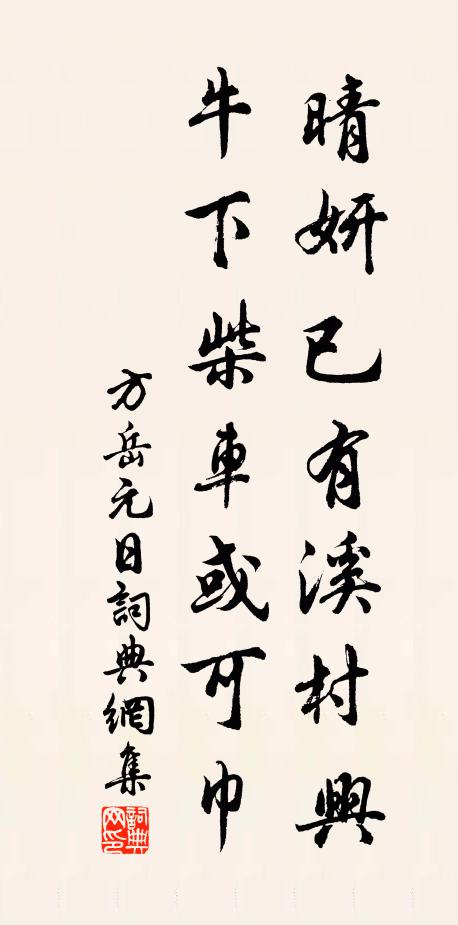 晴妍已有溪村興
牛下柴車或可巾
方岳元日詞典網集
詞典網印